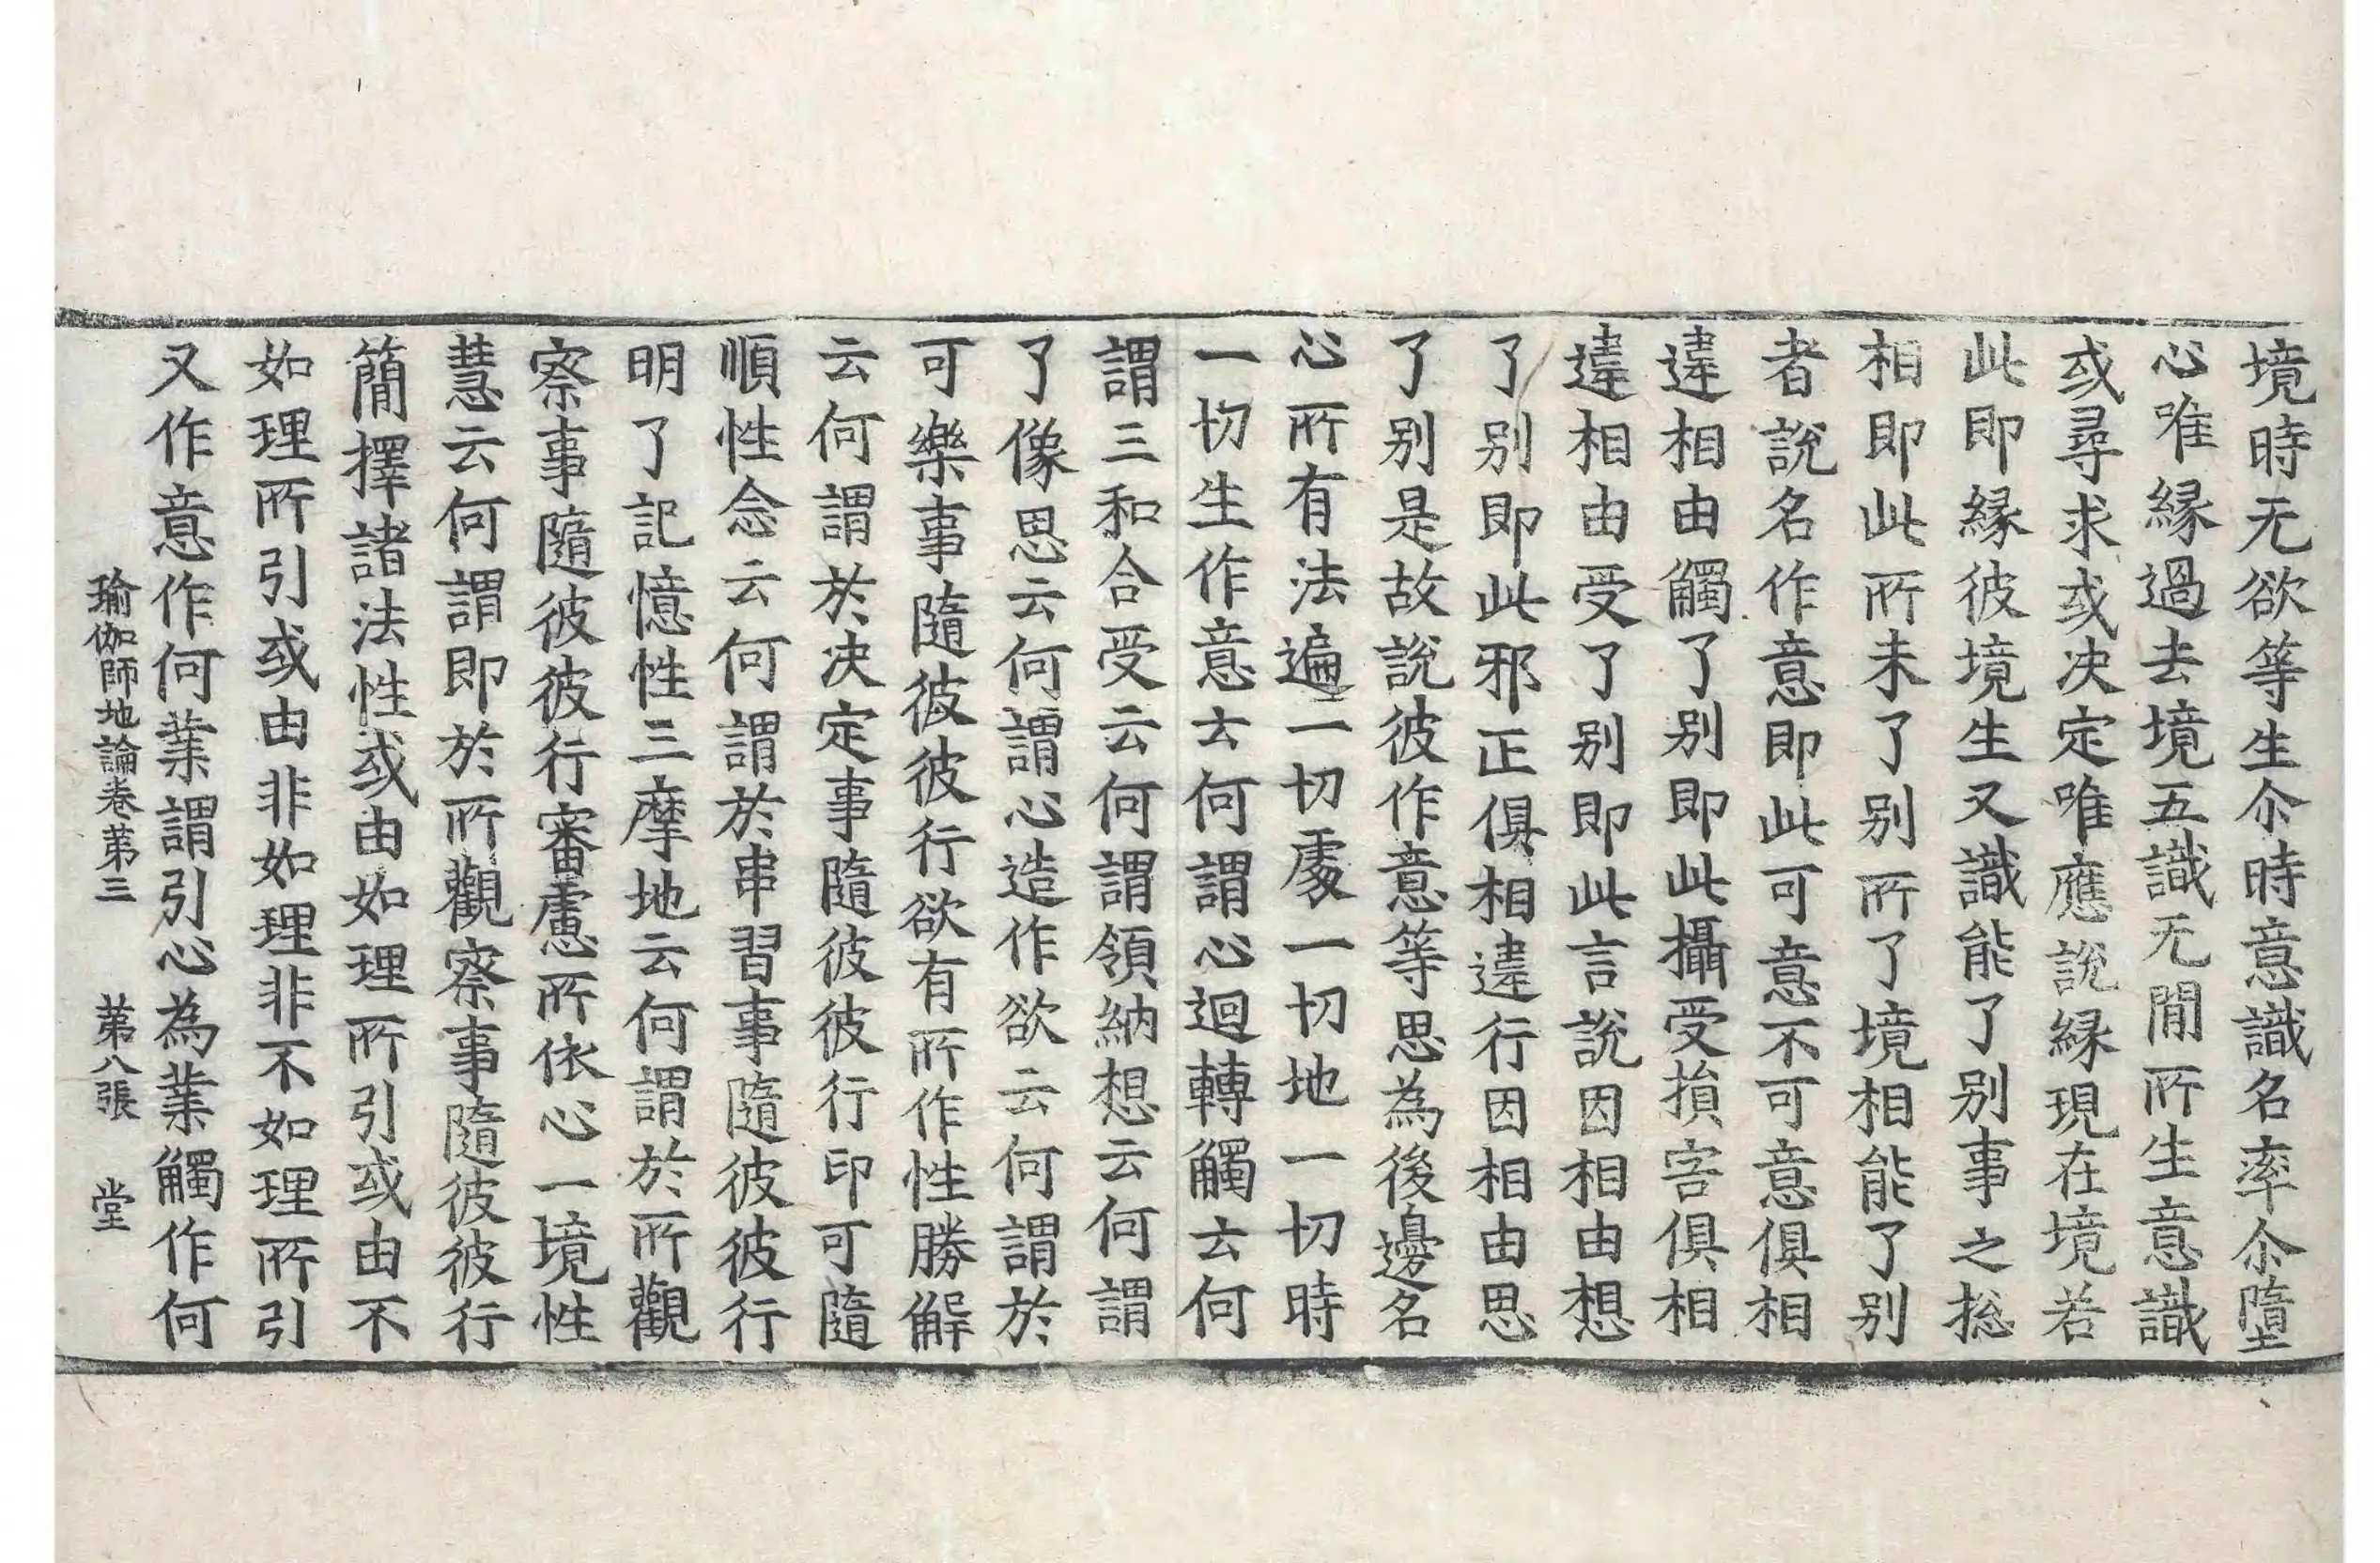 境時无欲等生尒時意識名率尒墮
心唯緣過去境五識无閒所生意識
或尋求或决定唯應說緣現在境若
此即緣彼境生又識能了别事之揔
相即此所未了别所了境相能了别
者說名作意即此可意不可意俱相
違相由觸了别即此攝受損害俱相
違相由受了别即此言說因相由想
了别即此邪正俱相違行因相由思
了别是故說彼作意等思為後邊名
心所有法遍一切處一切地一切時
一切生作意云何謂心迴轉觸云何
謂三和合受云何謂領納想云何謂
了像思云何謂心造作欲云何謂於
可樂事隨彼彼行欲有所作性勝解
云何謂於决定事隨彼彼行印可隨
順性念云何謂於串習事隨彼彼行
明了記憶性三摩地云何謂於所觀
察事隨彼彼行審慮所依心一境性
慧云何謂即於所觀察事隨彼彼行
簡擇諸法性或由如理所引或由不
如理所引或由非如理非不如理所引
又作意作何業謂引心為業觸作何
瑜伽師地論卷第三 第八張 堂